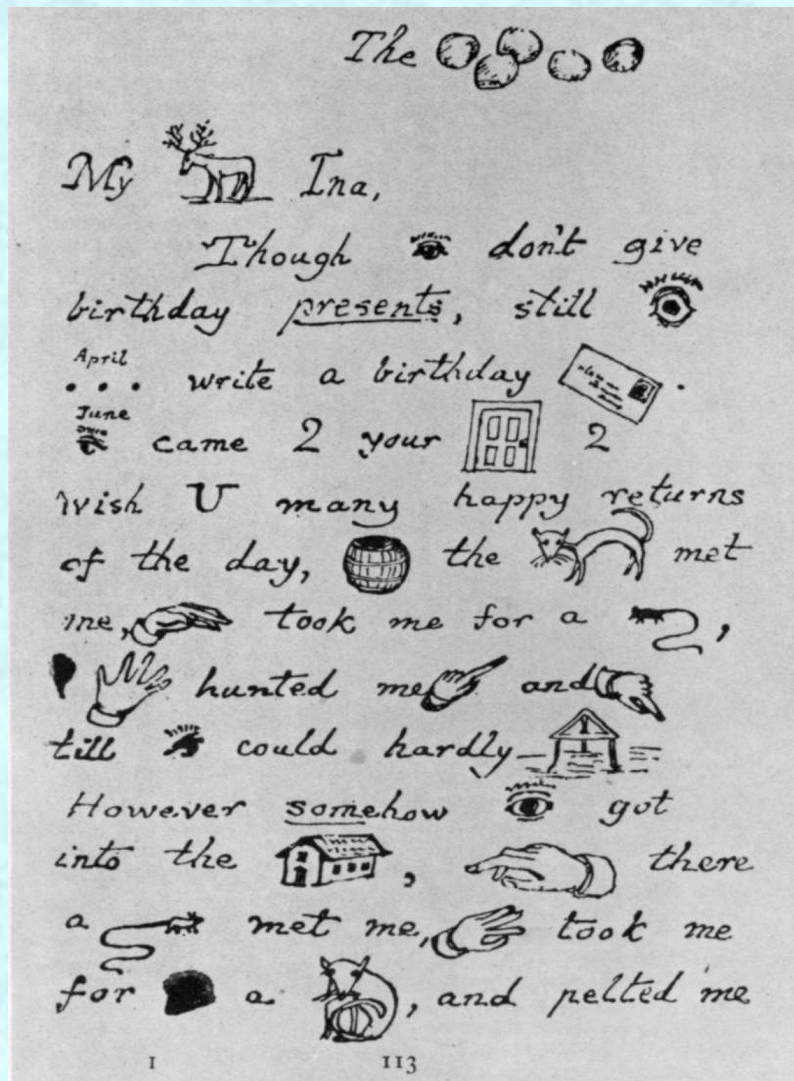 The
My Ina,
Though don't give
birthday presents, still
April
... write a birthday .
June
came 2 your 2
wish U many happy returns
of the day, the met
me, took me for a ,
hunted me and
till could hardly —
However somehow got
into the , there
a met me, took me
for a , and pelted me
I 113